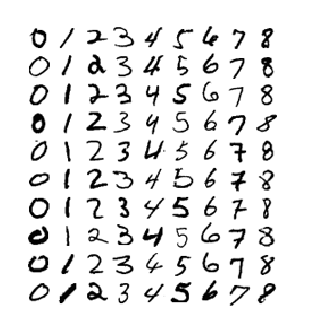 0 1 2 3 4 5 6 7 8
0 1 2 3 4 5 6 7 8
0 1 2 3 4 5 6 7 8
0 1 2 3 4 5 6 7 8
0 1 2 3 4 5 6 7 8
0 1 2 3 4 5 6 7 8
0 1 2 3 4 5 6 7 8
0 1 2 3 4 5 6 7 8
0 1 2 3 4 5 6 7 8
0 1 2 3 4 5 6 7 8